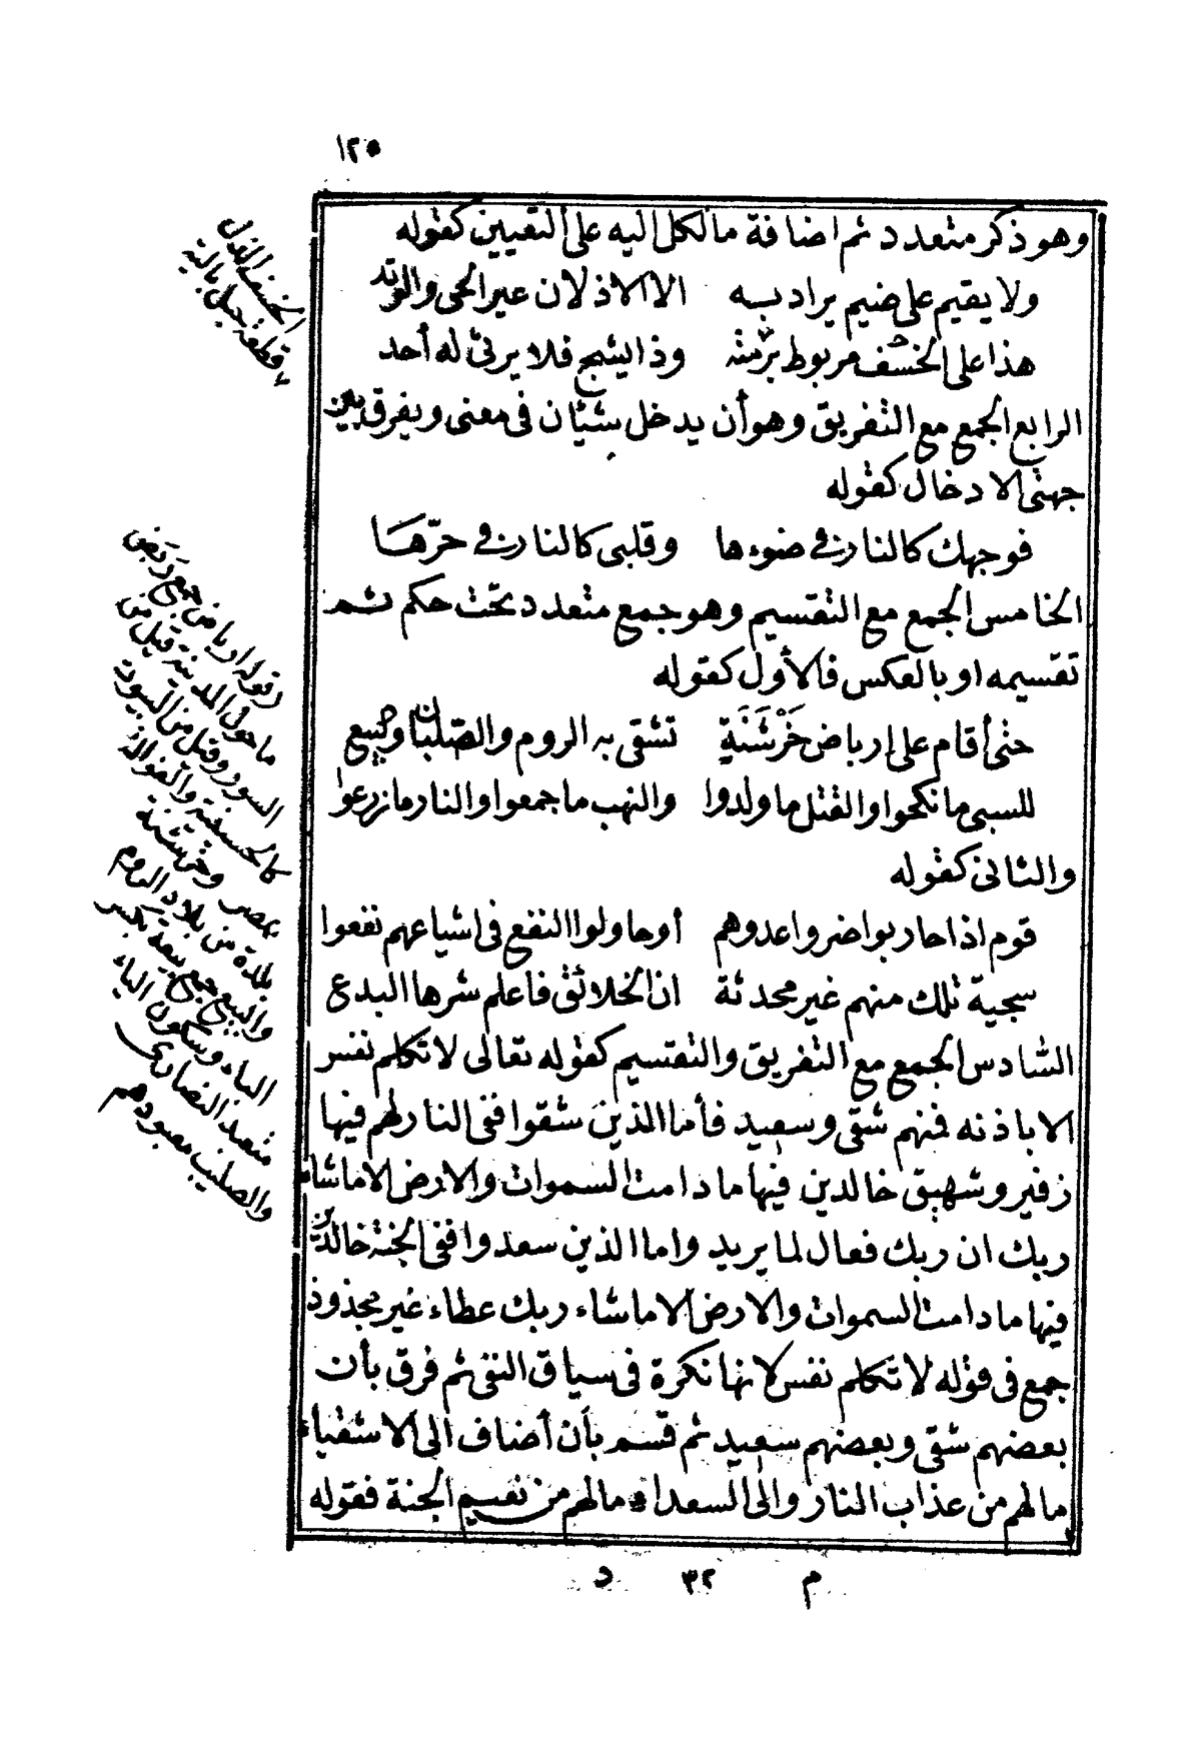 ١٢٥
وهو ذكر متعدد ثم اضافة ما لكل اليه على التعيين كقوله
ولا يقيم على ضيم يراد به الا الاذلان عير الحى والوتد
هذا على الخسف مربوط برمته وذا يشج فلا يرثى له أحد
الرابع الجمع مع التفريق وهو أن يدخل شيئان فى معنى ويفرق بين
جهتى الادخال كقوله
فوجهك كالنار فى ضوءها وقلبى كالنار فى حرّها
الخامس الجمع مع التقسيم وهو جمع متعدد تحت حكم ثم
تقسيمه او بالعكس فالأول كقوله
حتى أقام على ارباض خَرْشَنَةٍ تشقى به الروم والصلبان والبيع
للسبى ما نكحوا والقتل ما ولدوا والنهب ما جمعوا والنار ما زرعوا
والثانى كقوله
قوم اذا حاربوا ضروا عدوهم أو حاولوا النفع فى اشياعهم نفعوا
سجية تلك منهم غير محدثة ان الخلائق فاعلم شرها البدع
السادس الجمع مع التفريق والتقسيم كقوله تعالى لا تكلم نفس
الا باذنه فمنهم شقى وسعيد فأما الذين شقوا ففى النار لهم فيها
زفير وشهيق خالدين فيها ما دامت السموات والارض الا ما شاء
ربك ان ربك فعال لما يريد واما الذين سعدوا ففى الجنة خالدين
فيها ما دامت السموات والارض الا ما شاء ربك عطاء غير مجذوذ
جمع فى قوله لا تكلم نفس لانها نكرة فى سياق النفى ثم فرق بأن
بعضهم شقى وبعضهم سعيد ثم قسم بأن أضاف الى الاشقياء
ما لهم من عذاب النار والى السعداء ما لهم من نعيم الجنة فقوله
م ٣٢ د
الخسف الذل
قطعة حبل بالية
قوله ارباض جمع ربض
ما حول المدينة قيل من
السور وقيل من البيوت
كالحسينية والفوالة
بمصر وخرشنة
بلدة من بلاد الروم
والبيع جمع بيعة بكسر
الباء وسكون الياء
متعبد النصارى
والصليب معبودهم